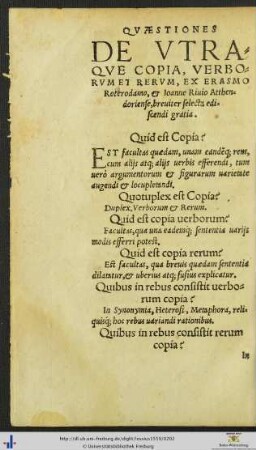 QVÆSTIONES
DE VTRA-
QVE COPIA, VERBO-
RVM ET RERVM, EX ERASMO
Roterodamo, & Ioanne Riuio Atthen-
doriense, breuiter selectæ edi-
scendi gratia.
Quid est Copia?
EST facultas quædam, unam eandẽq; rem,
cum alijs atq; alijs uerbis efferendi, tum
uerò argumentorum & figurarum uarietate
augendi & locupletandi.
Quotuplex est Copia?
Duplex, Verborum & Rerum.
Quid est copia uerborum?
Facultas, qua una eademq; sententia uarijs
modis efferri potest.
Quid est copia rerum?
Est facultas, qua breuis quædam sententia
dilatatur, & uberius atq; fusius explicatur.
Quibus in rebus consistit uerbo-
rum copia?
In Synonymia, Heterosi, Metaphora, reli-
quisq; hos rebus uariandi rationibus.
Quibus in rebus consistit rerum
copia?
In
© Universitätsbibliothek Freiburg